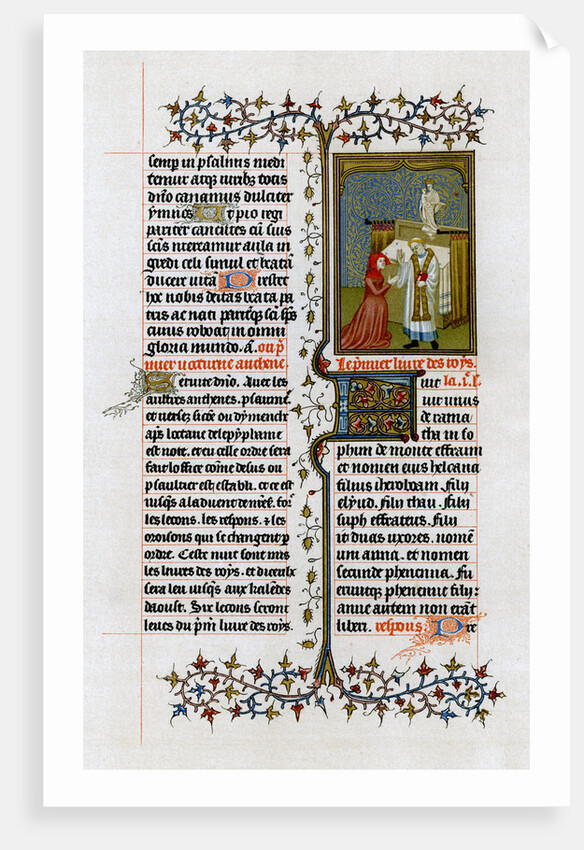 semp in psalmis medi
temur atq; uirib; totis
dño canamus dulciter
ymnos Ut pio regi
pariter canentes cū suis
scīs mereamur aula in
gredi celi simul et beatā
ducere uitā Prestet
hoc nobis deitas beata pa
tris ac nati pariterq; scī sps
cuius reboat in omni
gloria mundo. a. ou p̄
mier nocturne anthene.
Seruite dño. Auec les
aultres anthenes. psaumē.
et versez sicōe ou dymench
apś loctaue de lepyphane
est note. et eu celle ordre sera
fait loffice cōme desus ou
psaultier est establi. et ce est
iusqs a laduent de nr̄e. s. toś
les lecons. les respons. et les
oroisons qui se changent p
ordre. Ceste nuit sont mis
les liures des roys. et diceulx
sera leu iusqs aux kalēdes
daoust. Six lecons seront
leues du pm̄ liure des roys.
Le pm̄ier liure des roys.
Fuit la .i. l.
uir unus
de rama
tha in so
phim de monte effraim
et nomen eius helcana
filius iheroboam. filij
elyud. filij thau. filij
suph effrateus. filij
it duas uxores. nomē
uni anna. et nomen
secunde phenenna. fu
eruntq; phenenne filij.
anne autem non erāt
liberi. respons. Pre